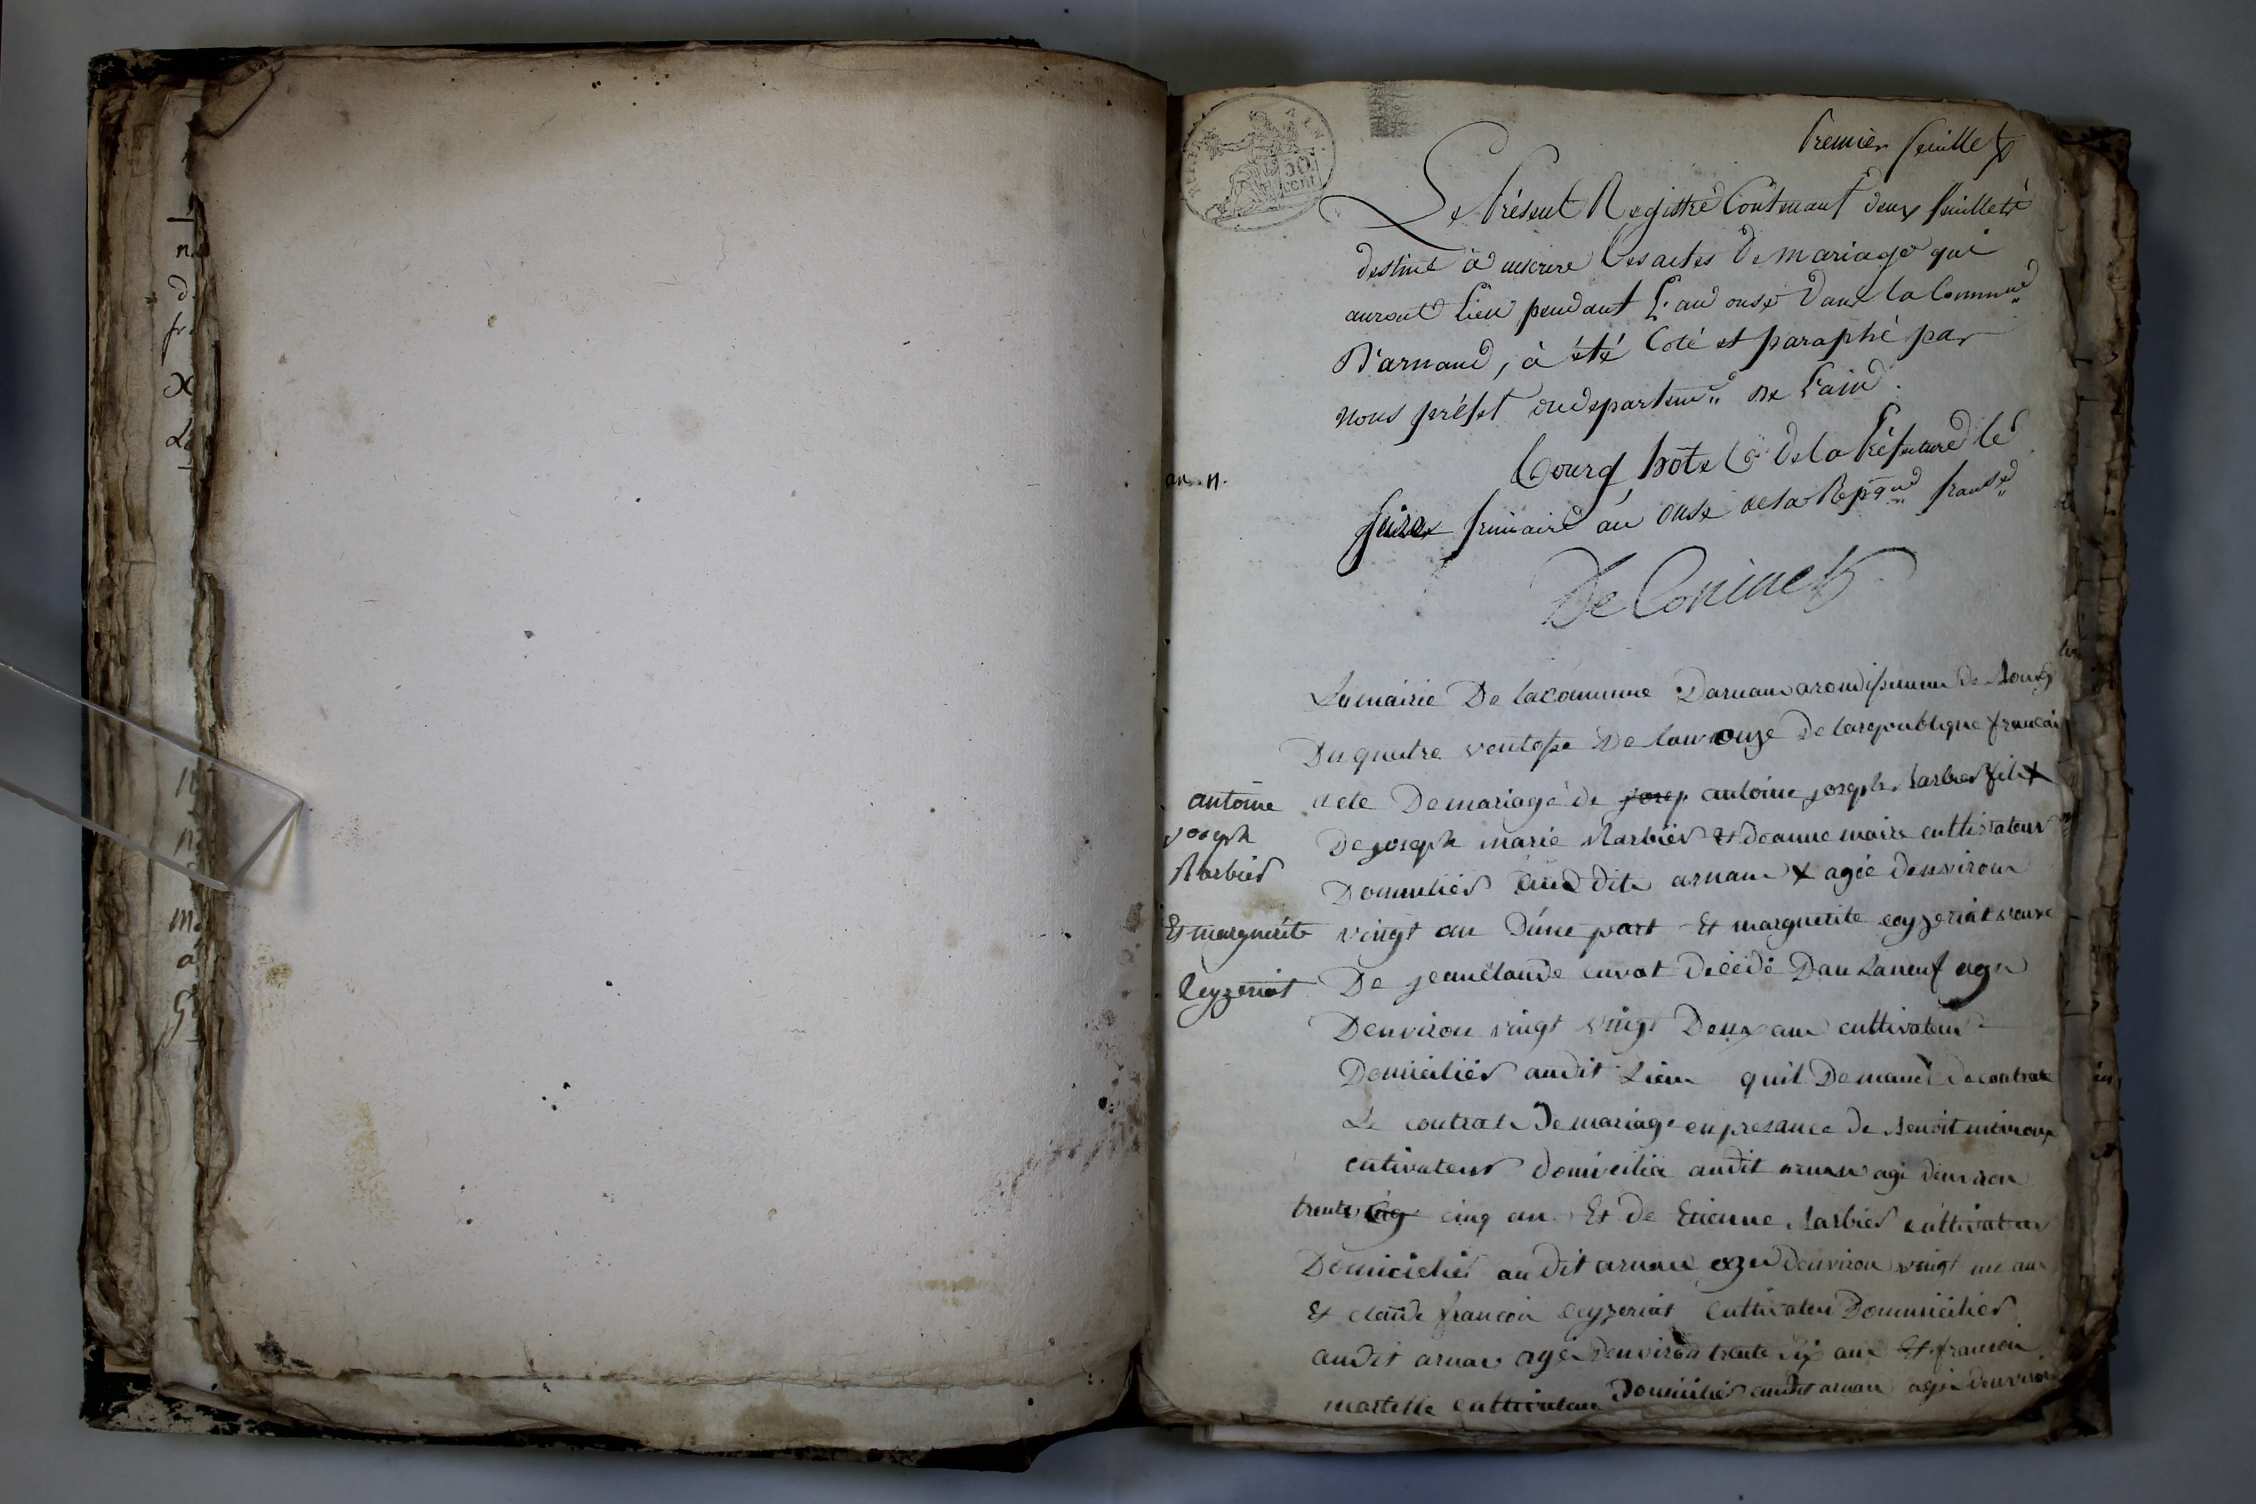 Premier feuillet
Le Présent Registre Contenant deux feuillets
destiné à inscrire les actes de mariage qui
auront lieu pendant l'an onze dans la Commune
D'arnand, à été Coté et paraphé par
nous préfet du departem" de l'ain.
Bourg hôtel de la Préfecture le
seize frimaire an onze de la Repque franse
De Coninck
an. 11.
La mairie De lacommune Darnan arondissemen de Bourg
Du quatre ventose De lan onze De larepublique francai
antoine
joseph
Barbier
Et marguerite
Ceyzeriat
acte De mariage de josep antoine joseph Barbier fils
De joseph marie Barbier et deanne maire cultivateur
Domiciliés audit arnan x agée denviron
vingt an Dune part Et marguerite ceyzeriat veuve
De jeanclaude cuvat décédé Dan Laneuf age
Denviron vingt vingt Deux an cultivateur
Domiciliés audit Lieu quil Demande de contrate
Le contrat De mariage en presance de Benoit
cutivateur domicilié audit arnan agé denviron
trente cinq cinq an Et De Etienne Barbier cultivateur
Domiciliés audit arnan age denviron vingt un an
Et claude francoi ceyzeriat cultivateu Domiciliés
audit arnan age denviron trente six an Et francoi
martelle cultivateur Domiciliés audit arnan agé denviron